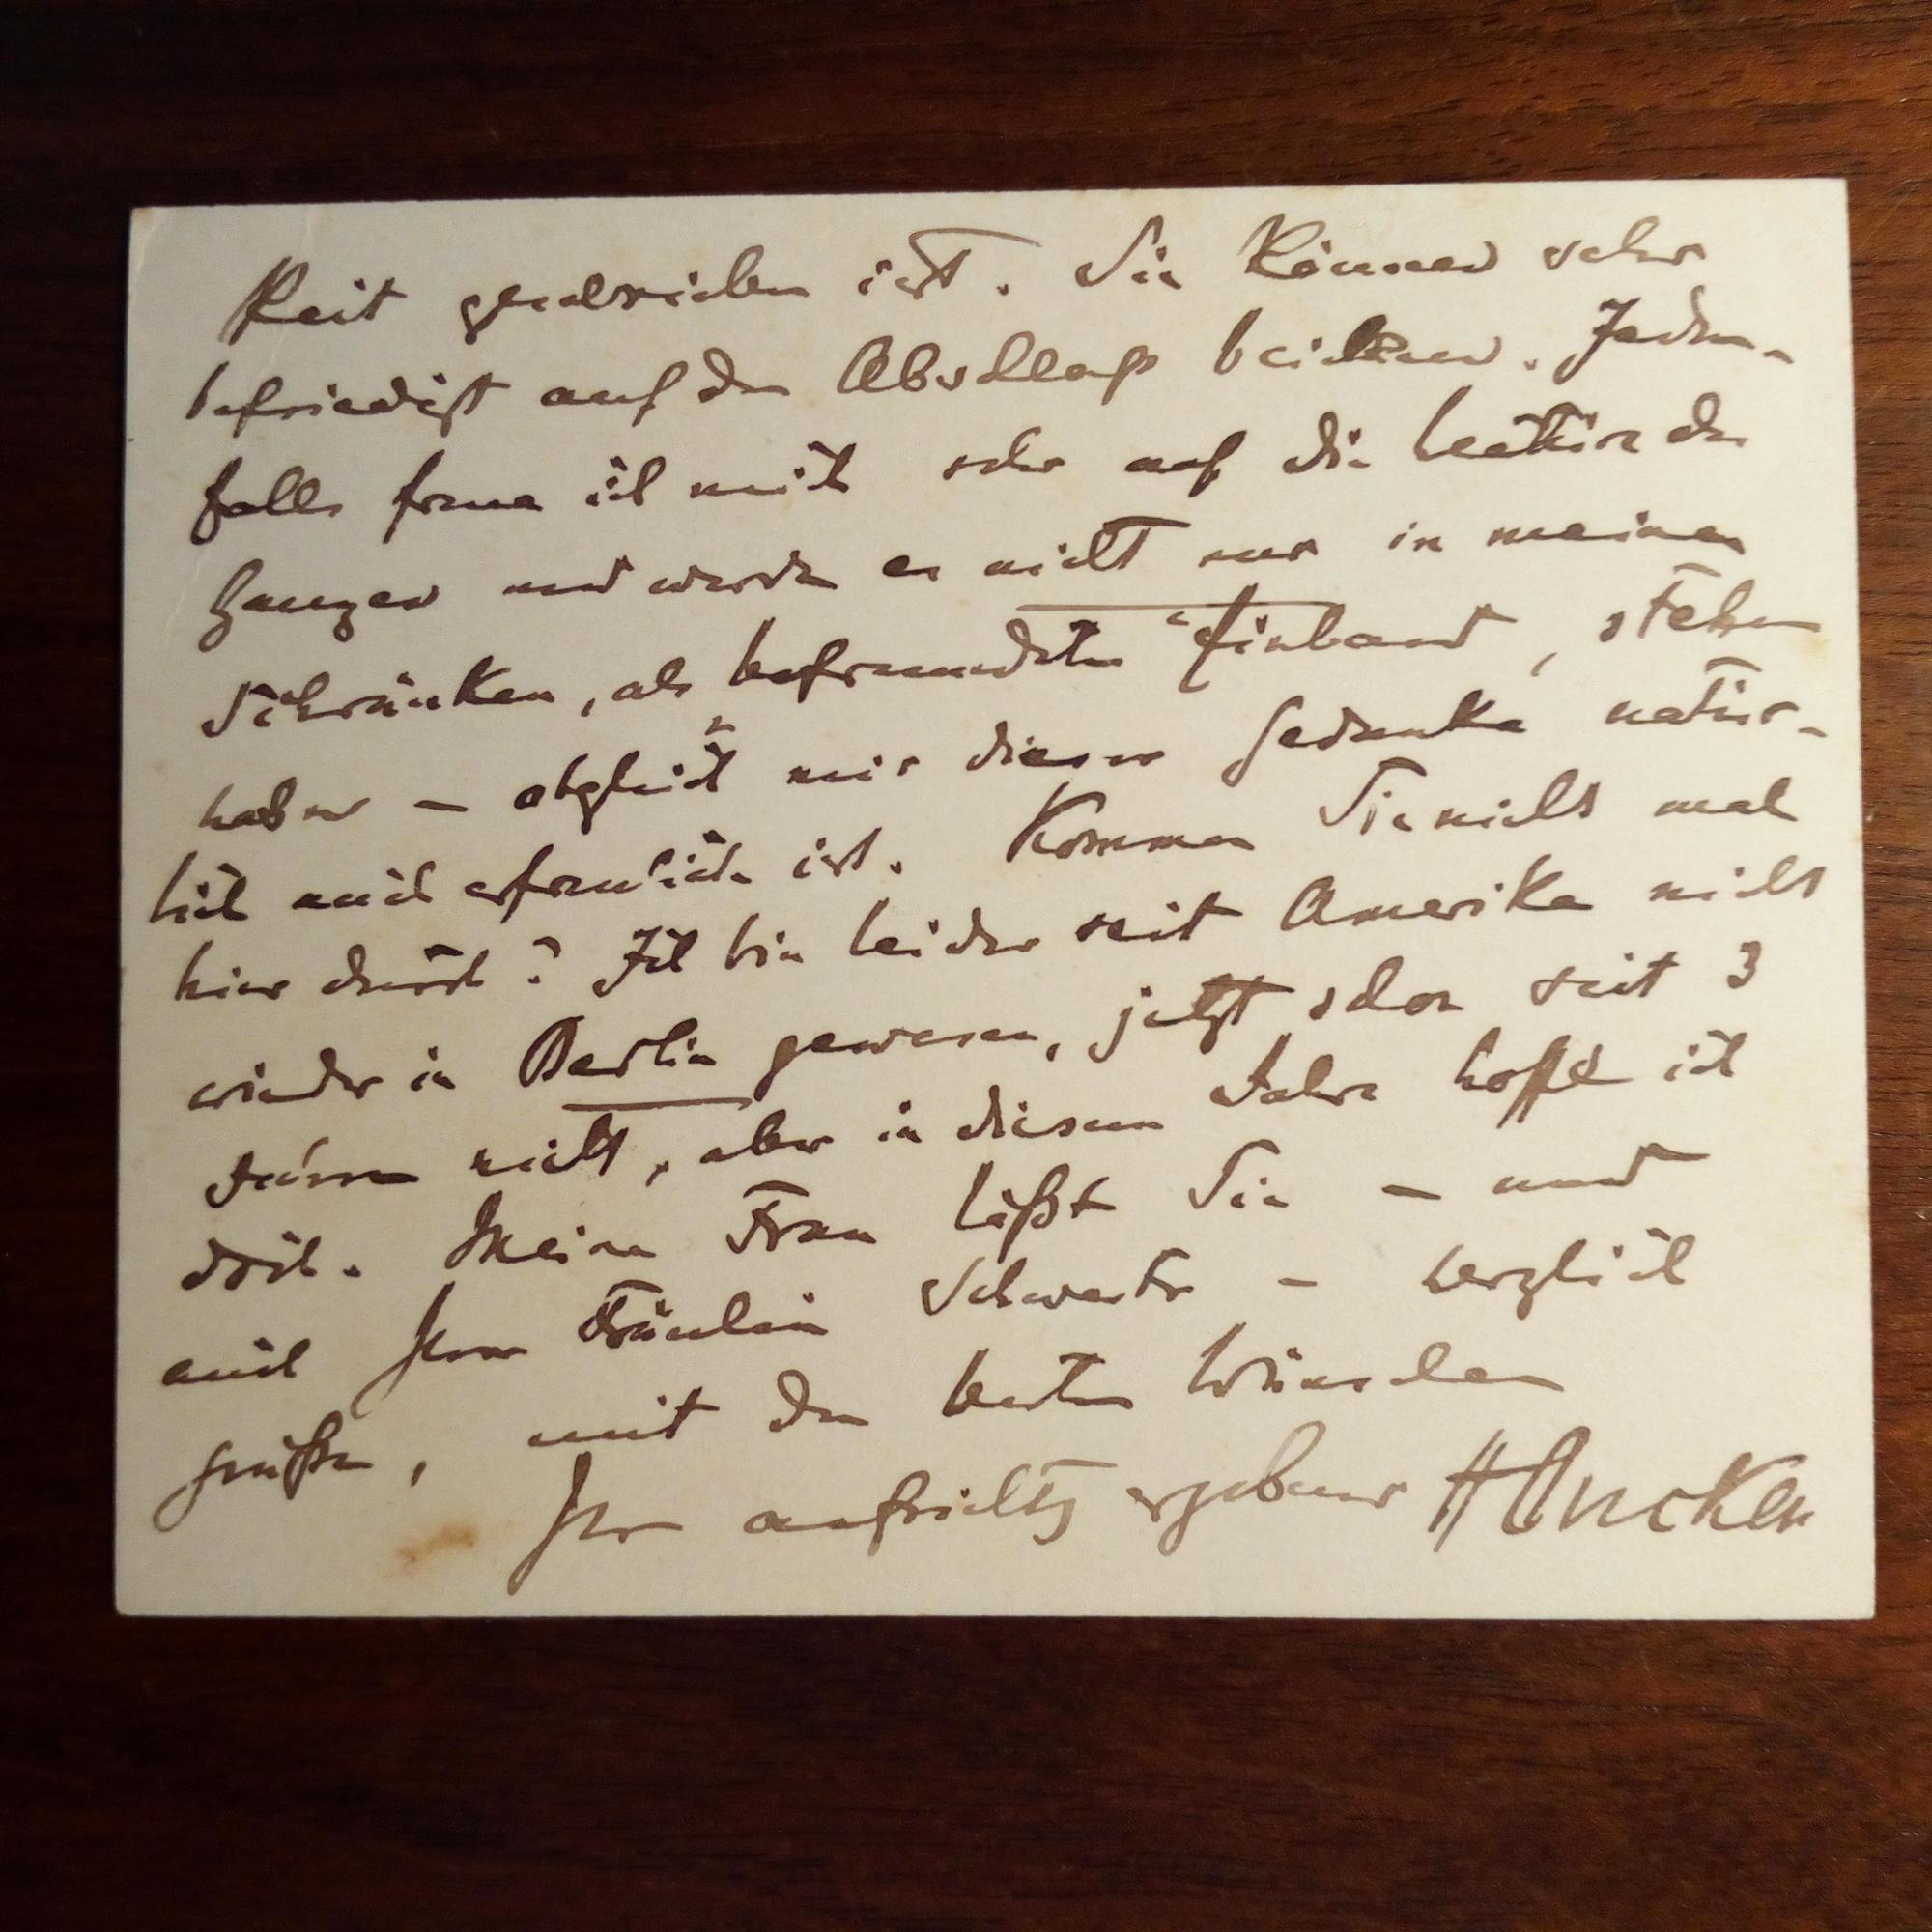 keit geschrieben ist. Sie können sehr
befriedigt auf den Abschluß blicken. Jeden-
falls freue ich mich sehr auf die Lektüre des
Ganzen und werde es nicht nur in meinen
Schränken, als befreundeten Einband, stehen
haben – obgleich mir dieser Gedanke natür-
lich auch erfreulich ist. Kommen Sie nicht mal
hier durch? Ich bin leider seit Amerika nicht
wieder in Berlin gewesen, jetzt schon seit 3
Jahren nicht, aber in diesem Jahre hoffe ich
doch. Meine Frau läßt Sie – und
auch Ihre Fräulein Schwester – herzlich
grüßen, mit den besten Wünschen
Ihr aufrichtig ergebener H Oncken